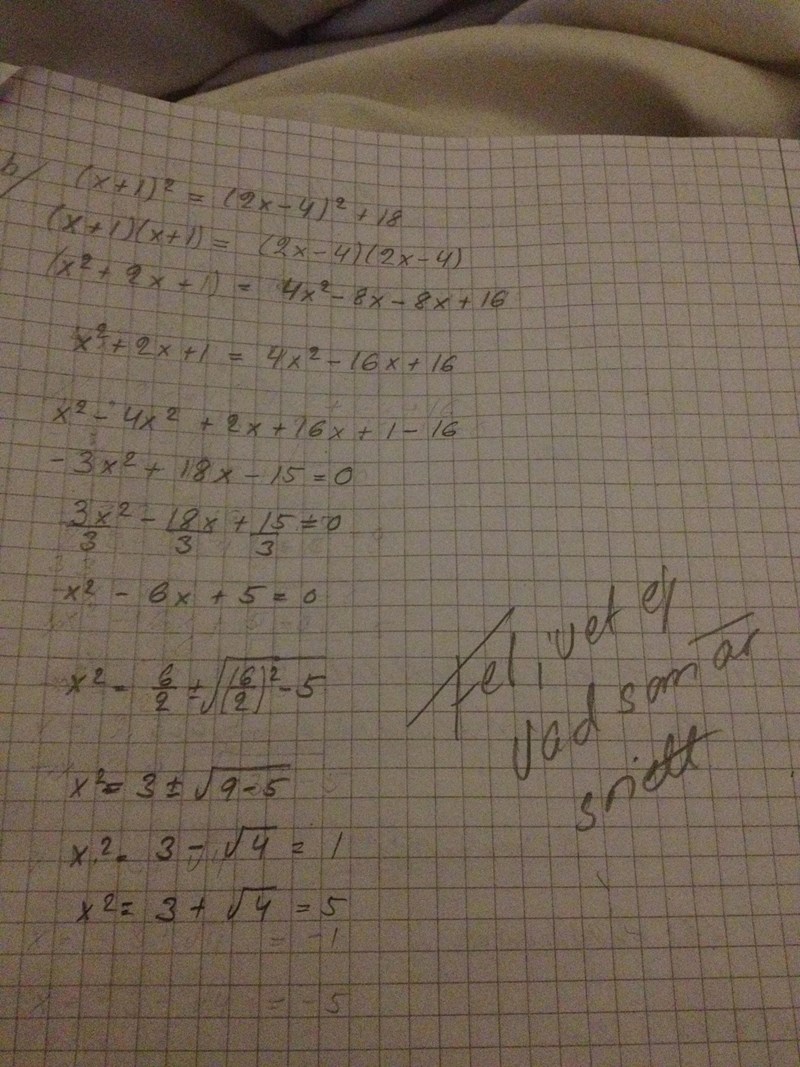 b/ (x+1)² = (2x-4)² + 18
(x+1)(x+1) = (2x-4)(2x-4)
(x²+2x+1) = 4x²-8x-8x+16
x²+2x+1 = 4x²-16x+16
x²-4x²+2x+16x+1-16
-3x²+18x-15=0
3x²/3 - 18x/3 + 15/3 = 0
x² - 6x + 5 = 0
x² = 6/2 ± √((16/2)² - 5)
x² = 3 ± √(9-5)
x² = 3 - √4 = 1
x² = 3 + √4 = 5
= -1
= -5
fel, vet ej
vad som är